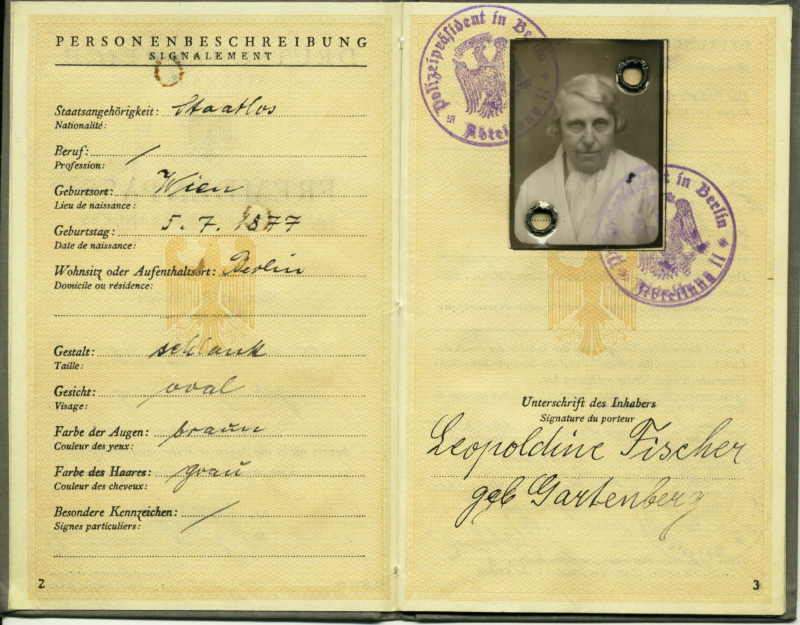 PERSONENBESCHREIBUNG
SIGNALEMENT
Staatsangehörigkeit: Staatlos
Nationalité:
Beruf: /
Profession:
Geburtsort: Wien
Lieu de naissance:
Geburtstag: 5. 7. 1877
Date de naissance:
Wohnsitz oder Aufenthaltsort: Berlin
Domicile ou résidence:
Gestalt: schlank
Taille:
Gesicht: oval
Visage:
Farbe der Augen: braun
Couleur des yeux:
Farbe des Haares: grau
Couleur des cheveux:
Besondere Kennzeichen: /
Signes particuliers:
2
Polizeipräsident in Berlin
Abteilung II
in Berlin
Abteilung II
Unterschrift des Inhabers
Signature du porteur
Leopoldine Fischer
geb Gartenberg
3